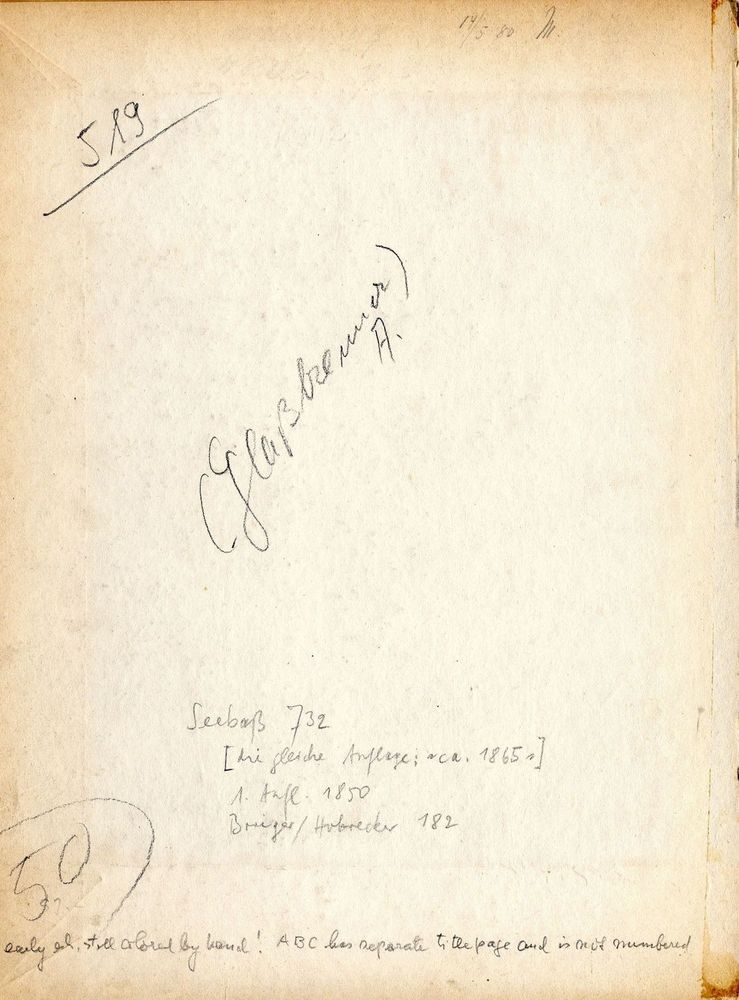 14/5 80 M.
519
(Glaßbrenner)
A.
Seebaß 732
[die gleiche Auflage; »ca. 1865«]
1. Aufl. 1850
/Hobrecker 182
50
early ed. still colored by hand! ABC has separate title page and is not numbered